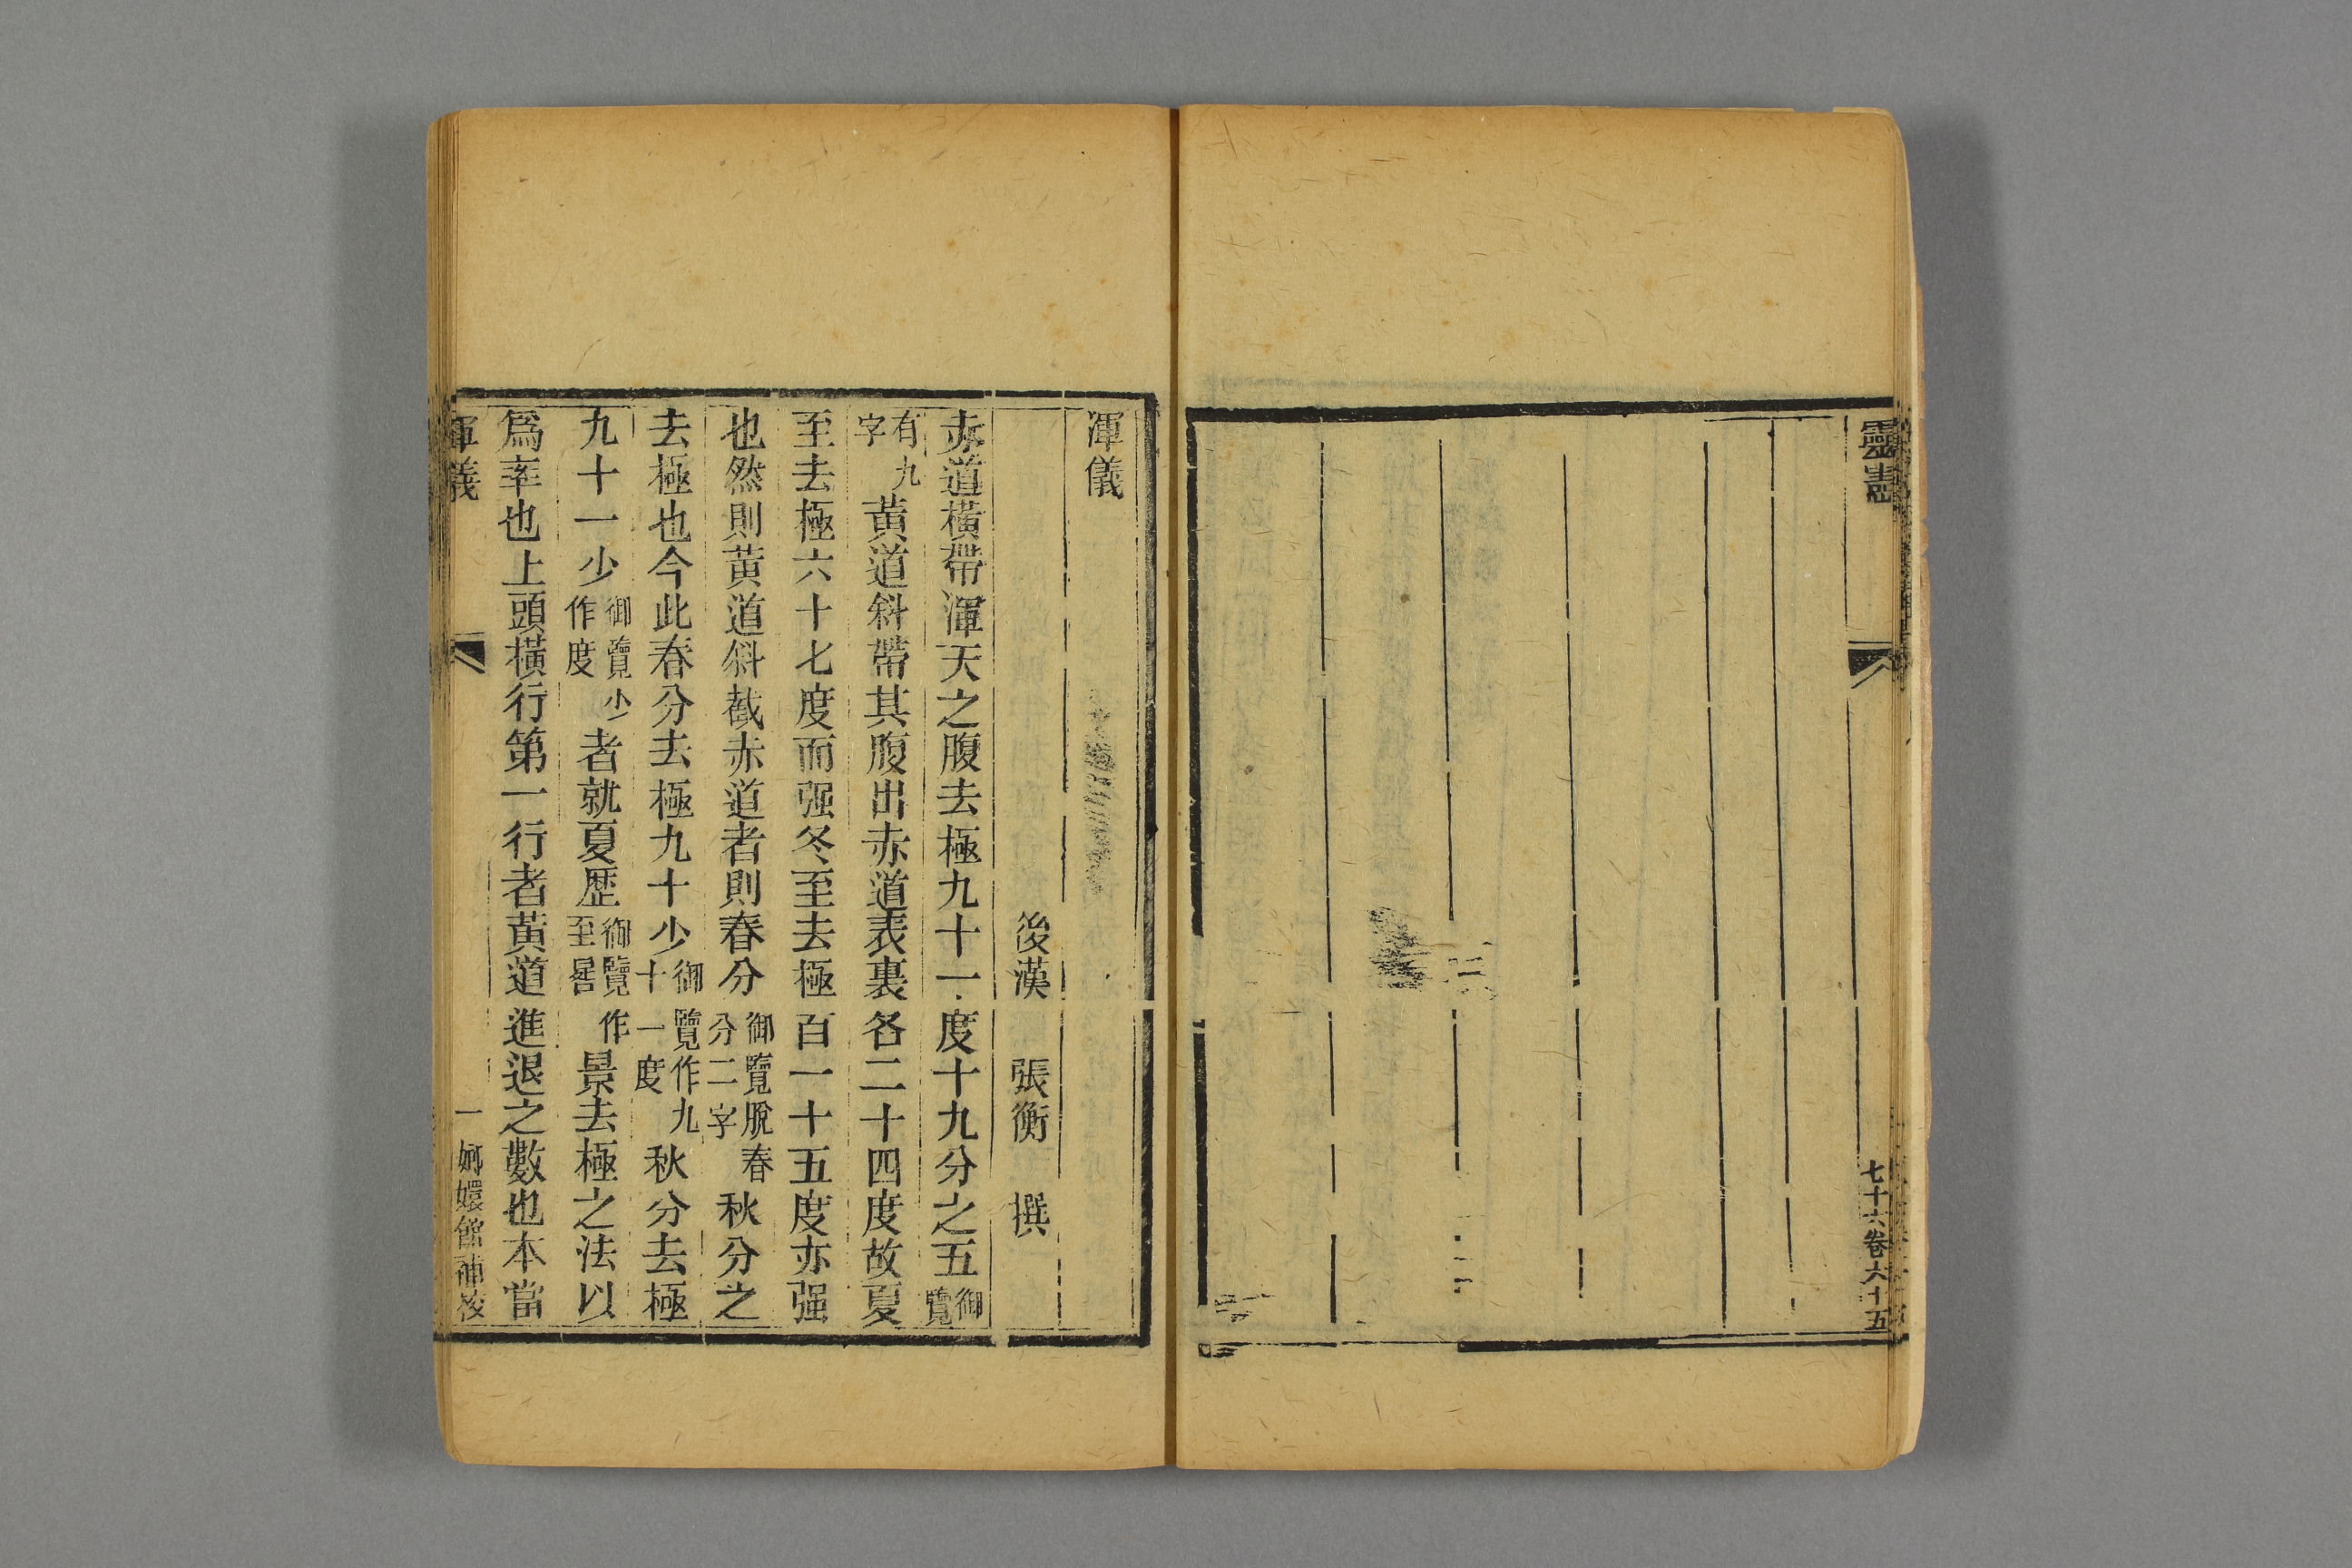 靈憲
七十六卷六十五
渾儀
後漢 張衡 撰
赤道橫帶渾天之腹去極九十一度十九分之五御覽
有九字黃道斜帶其腹出赤道表裏各二十四度故夏
至去極六十七度而强冬至去極百一十五度亦强
也然則黃道斜截赤道者則春分御覽脫春分二字秋分之
去極也今此春分去極九十少御覽作九十一度秋分去極
九十一少御覽少作度者就夏歷御覽作至晷景去極之法以
爲率也上頭橫行第一行者黃道進退之數也本當
渾儀
一 嫏嬛館補校